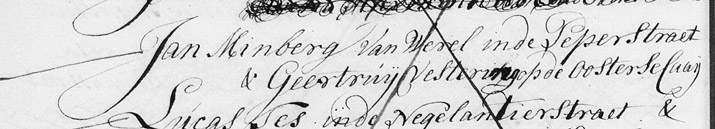 Jan Minberg Van Werel in de Peperstraet
& Geertruÿ Vestering op de Oosterse Caaÿ
Lucas Tes in de Negelantierstraet &